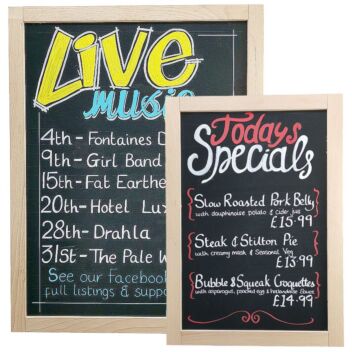 Live
Music
4th - Fontaines D
9th - Girl Band
15th - Fat Earthe
20th - Hotel Lux
28th - Drahla
31st - The Pale W
See our Facebook
full listings & suppo
Todays
Specials
Slow Roasted Pork Belly
with dauphinoise potato & cider jus
£15.99
Steak & Stilton Pie
with creamy mash & Seasonal Veg
£13.99
Bubble & Squeak Croquettes
with asparagus, poached egg & hollandaise sauce
£14.99